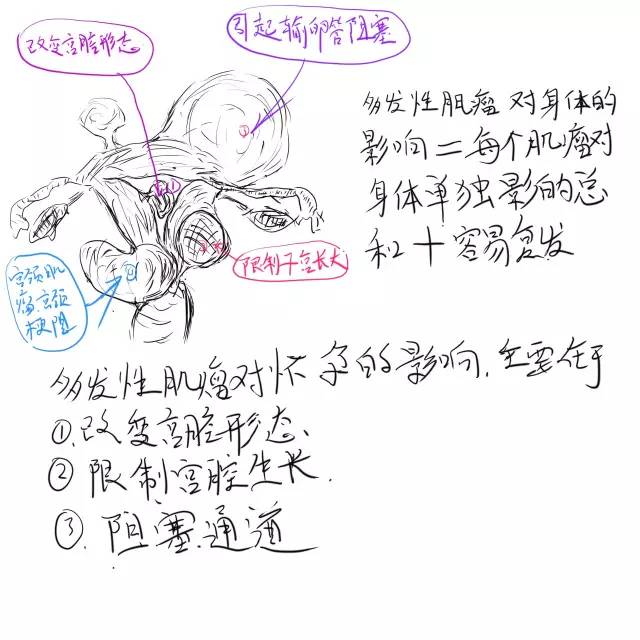 改变宫腔形态
引起输卵管阻塞
多发性肌瘤对身体的
影响=每个肌瘤对
身体单独影的总
和+容易复发
限制子宫长大
宫颈肌
瘤宫颈
梗阻
多发性肌瘤对怀孕的影响,主要在于
①.改变宫腔形态、
②限制宫腔生长.
③.阻塞通道